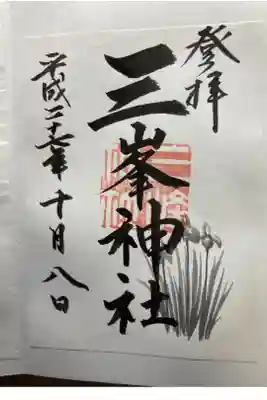 登拝
三峯神社
平成二十六年十月八日